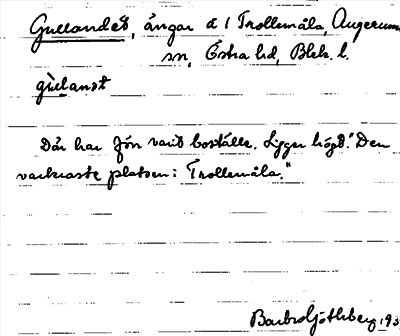 Gullandet, ängar å 1 Trollemåla, Augerums
sn, Östra hd, Blek. l.
gùlanət
Där har förr varit boställe. Ligger högt. "Den
vackraste platsen i Trollemåla."
Barbro Göthberg 193